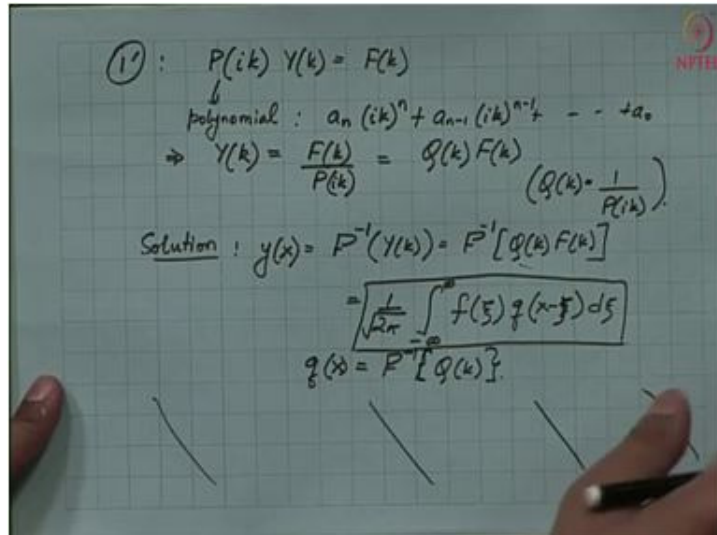 (1') : P(ik) Y(k) = F(k)
NPTEL
↓
polynomial : aₙ (ik)ⁿ + aₙ₋₁ (ik)ⁿ⁻¹ + - - - + a₀
⇒ Y(k) = F(k)/P(ik) = Q(k) F(k) (Q(k) = 1/P(ik)).
Solution : y(x) = F⁻¹(Y(k)) = F⁻¹[Q(k) F(k)]
= 1/√2π ∫_{-∞}^{∞} f(ξ) q(x-ξ) dξ
q(x) = F⁻¹{Q(k)}.